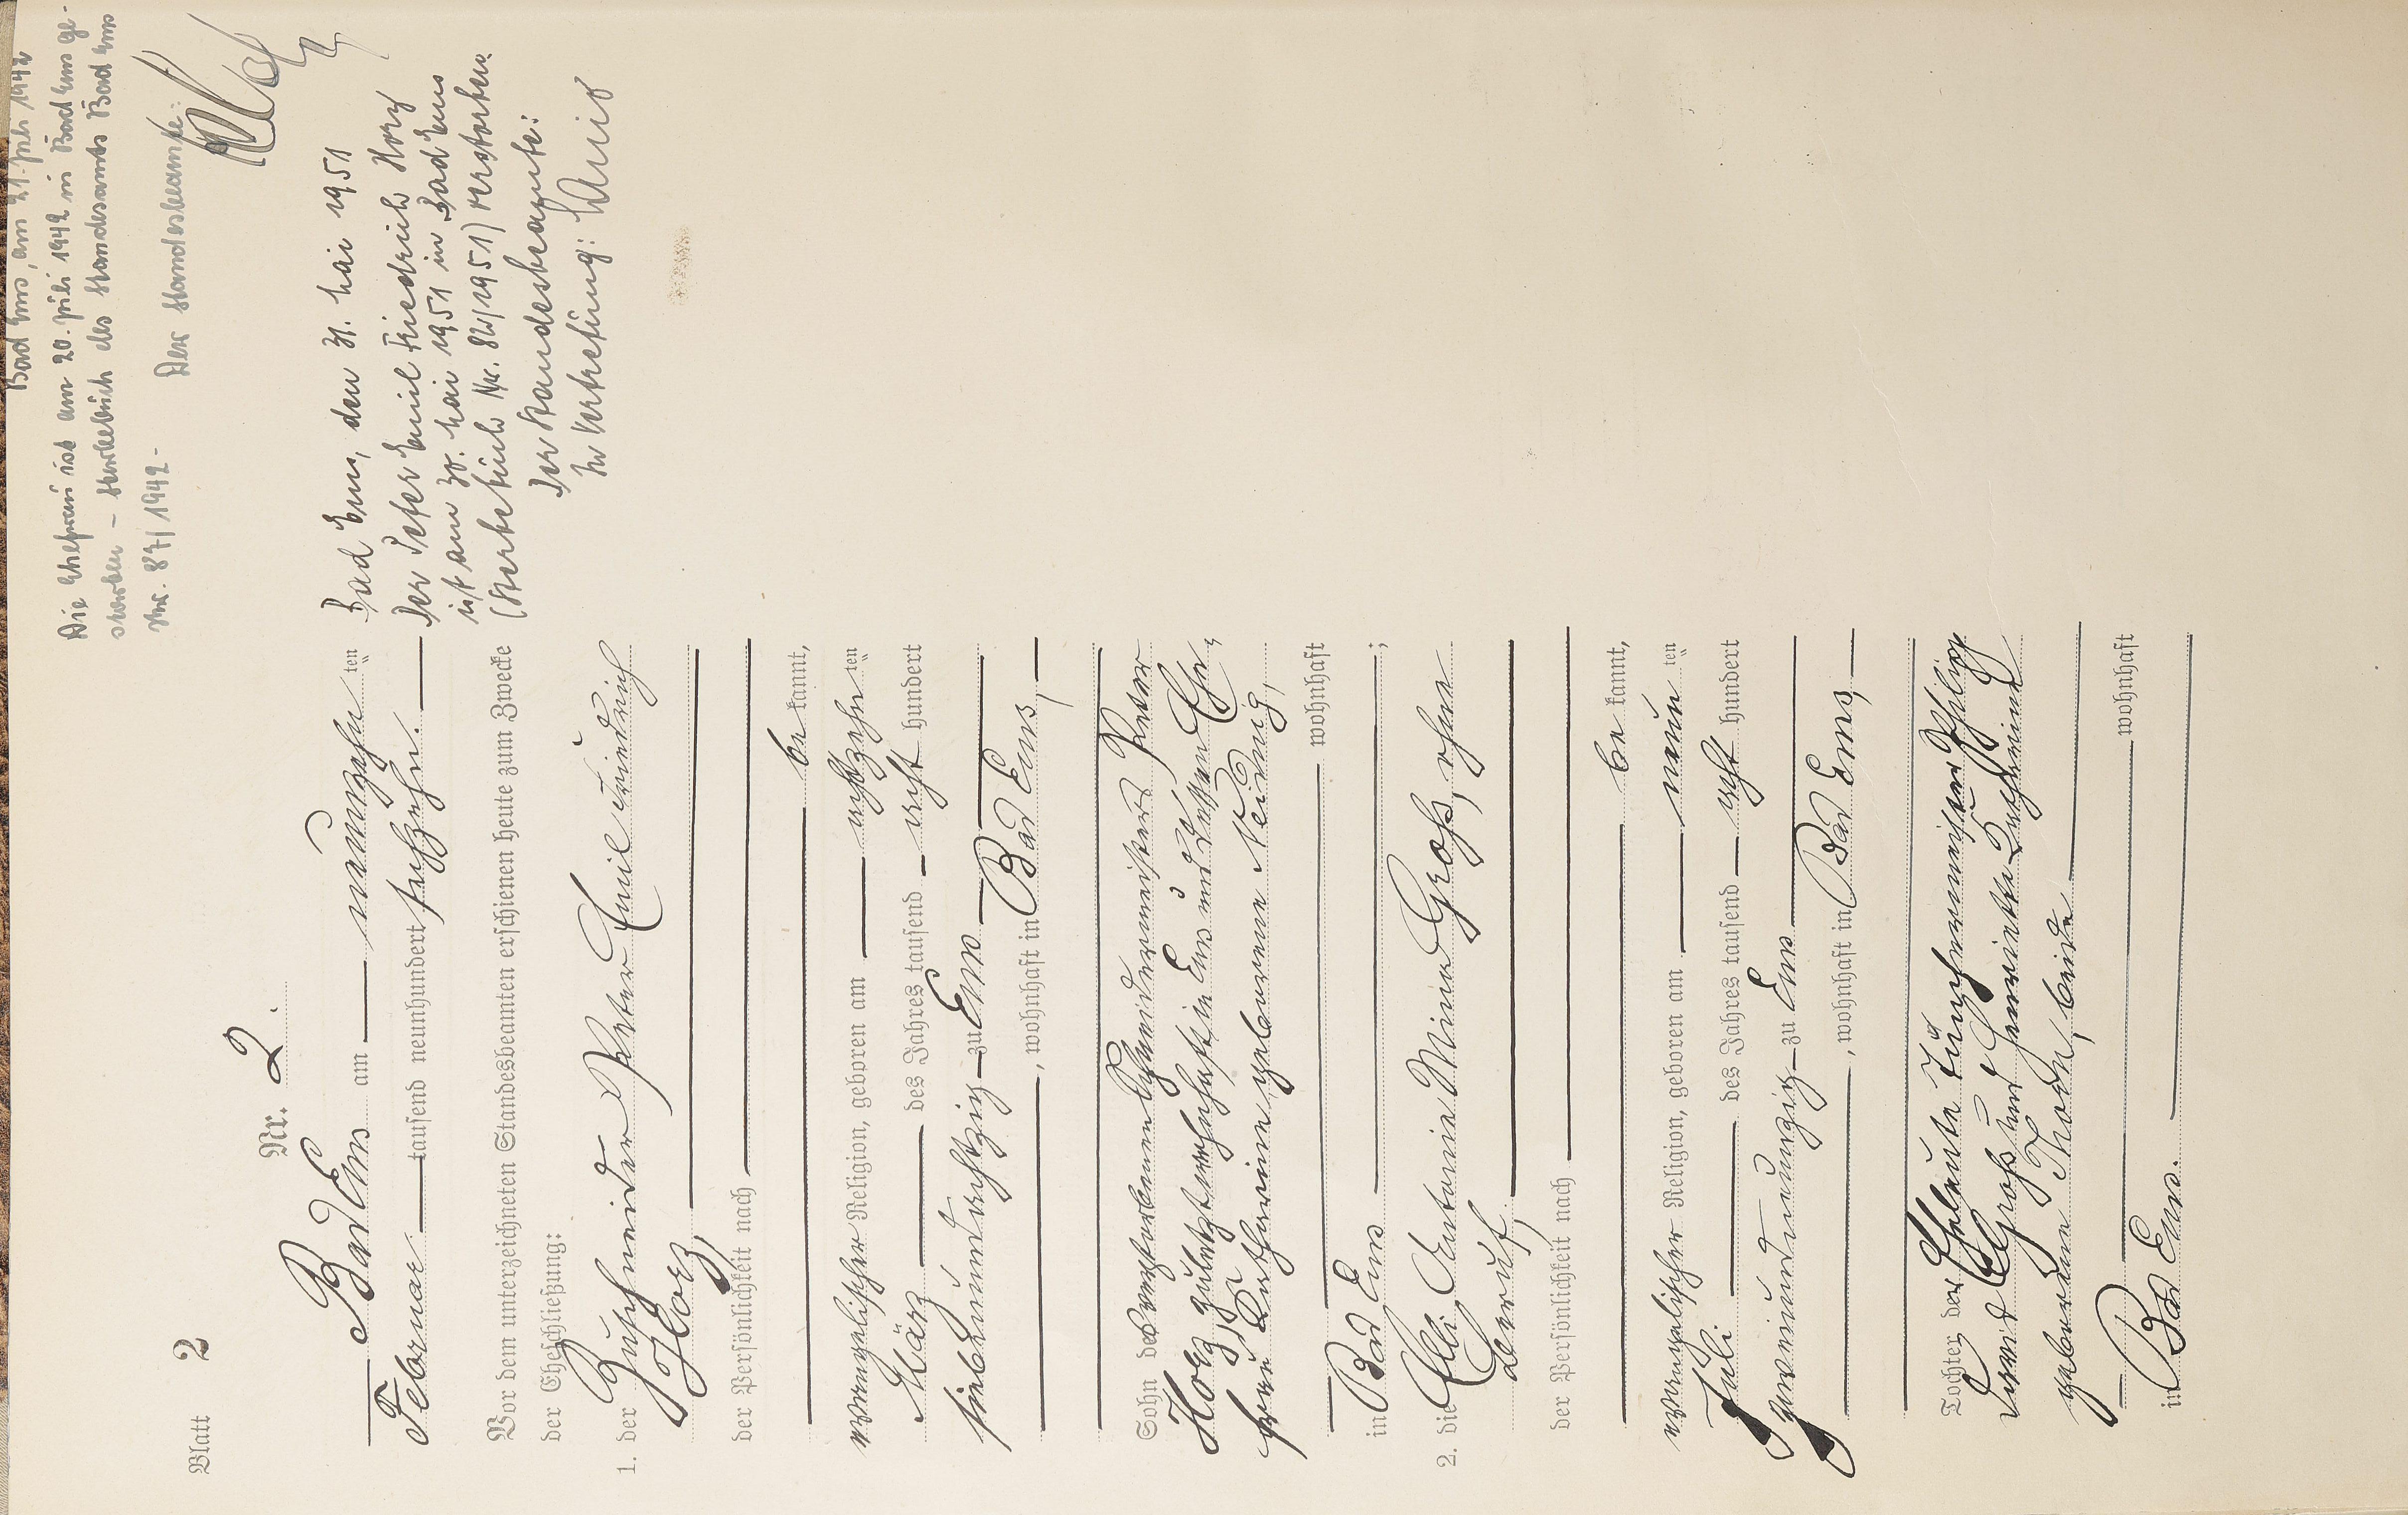 Blatt 2
Nr. 2.
Bad Ems am neunzehnten
Februar tausend neunhundert sechzehn.
Vor dem unterzeichneten Standesbeamten erschienen heute zum Zwecke
der Eheschließung:
1. der Zuschneider Peter Emil Friedrich
Horz,
der Persönlichkeit nach
bekannt,
evangelischer Religion, geboren am achtzehnten
März des Jahres tausend acht hundert
siebenundachtzig zu Ems
, wohnhaft in Bad Ems,
Sohn des verstorbenen Schneidermeisters Peter
Horz, zuletzt wohnhaft in Ems und dessen Ehe-
frau Katharine geborene Neidnig,
wohnhaft
in Bad Ems;
2. die Elli Antonie Minna Groß, ohne
Beruf,
der Persönlichkeit nach
bekannt,
evangelischer Religion, geboren am neunten
Juli des Jahres tausend acht hundert
zweiundneunzig zu Ems
, wohnhaft in Bad Ems,
Tochter der Eheleute Tünchermeister Philipp
David Groß und Henriette
geborene Thorn, beide
wohnhaft
in Bad Ems.
Bad Ems, am 21. Juli 1942
Die Ehefrau ist am 20. Juli 1942 in Bad Ems ge-
storben – Sterbebuch des Standesamts Bad Ems
Nr. 87/1942 -
Der Standesbeamte:
Bad Ems, den 31. Mai 1951
Der Peter Emil Friedrich Horz
ist am 30. Mai 1951 in Bad Ems
(Sterbebuch Nr. 82/1951) verstorben.
Der Standesbeamte:
In Vertretung: